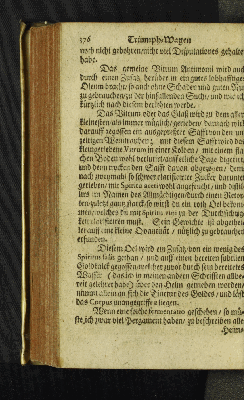 376 Triumph-Wagen
noch nicht gebohren/nicht viel Disputationes gehalten
habe.
Das gemeine Vitrum Antimonii wird auch
durch einen Zusatz bereitet in ein gutes
Oleum / so auch ohne Schaden und guten Nutz
zu gebrauchen/zu der hinfallenden Sucht/ und wie ich
kürtzlich nach diesem berichten werde.
Das Vitrum oder das Glaß wird zu dem aller
kleinesten/als immer möglich/gerieben/ demnach wird
darauff gegossen ein außgepresster Safft von den un-
zeitigen Weintrauben/ mit diesem Safft wird das
kleingeriebene Vitrum in einer Kolben / mit einem fla-
chen Boden wohl verlutirt/auf etliche Tage digerirt/
und dann trucken der Safft davon abgezogen/ dem-
nach zweymahl so schwer clarificirter Zucker darunter
gerieben/ mit Spiritu aceri wohl angefeucht/ und distil-
lirs im Namen des Allmächtigen/durch einen Retor-
ten/zuletzt gantz starck/so wirst du ein roth Oel bekom-
men/ welches du mit Spiritu vini zu der Durchsichtig-
keit clarificiren must. Sein Gewichte ist abgetheilet
auf eine kleine Quantität / nützlich zu gebrauchen
erfunden.
Diesem Oel wird ein Zusatz/von ein wenig des
Spiritus salis gethan / und auff einen bereiten subtilen
Goldkalck gegossen/welcher zuvor durch sein bereitetes
Wasser ( das ich in meinen andern Schrifften allbe-
reit gelehret habe) über den Helm getrieben werden/
nimmt allein an sich die Tinctur des Goldes/ und läst
das Corpus unangegriffen liegen.
Wenn eine solche fermentatio geschehen/ so mü-
ste ich zwar viel Pergament haben/ zu beschreiben alle
Heim-